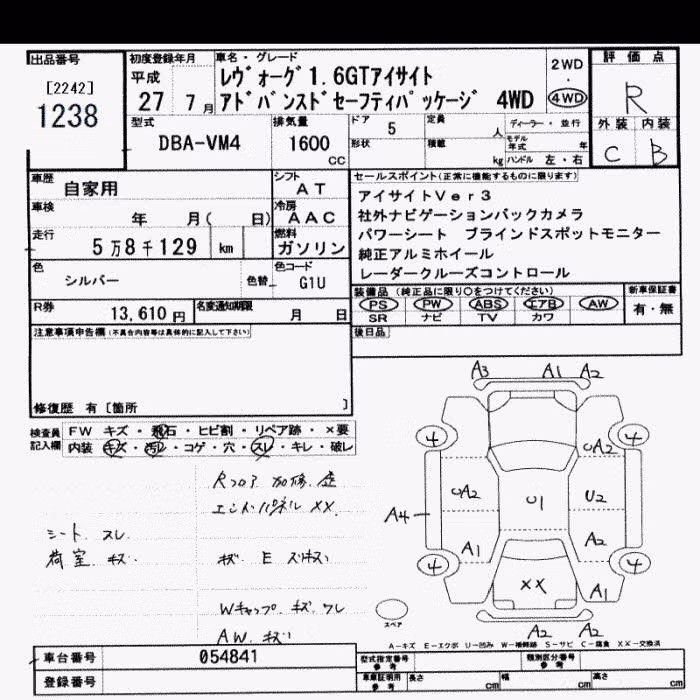 出品番号
[2242]
1238
初度登録年月
平成
27 7月
車名・グレード
レヴォーグ1.6GTアイサイト
アドバンスドセーフティパッケージ 4WD
2WD
・
4WD
評価点
R
外装 内装
C B
型式
DBA-VM4
排気量
1600
cc
ドア 5
形状
定員 人
積載 kg
ディーラー・並行
モデル年式 年
ハンドル 左・右
車歴
自家用
シフト
AT
車検
年 月( 日)
冷房
AAC
走行
5万8千129 km
燃料
ガソリン
色
シルバー
色替
色コード
G1U
R券
13,610円
名変通知期限
月 日
セールスポイント(正常に機能するものに限ります)
アイサイトVer3
社外ナビゲーションバックカメラ
パワーシート ブラインドスポットモニター
純正アルミホイール
レーダークルーズコントロール
装備品 (純正品に限り○をつけてください)
PS PW ABS エアB AW
SR ナビ TV カワ
新車保証書
有・無
後日品
注意事項申告欄(不具合内容等は具体的に記入して下さい)
修復歴 有〔箇所 〕
検査員記入欄
FW キズ・飛石・ヒビ割・リペア跡・×要
内装 キズ・汚レ・コゲ・穴・スレ・キレ・破レ
Rフロア 加修 歪
エンドパネル XX
シート スレ
荷室 キズ
キズ E ズキズ
Wキャップ キズ ワレ
AW キズ
A3 A1 A2
4 4
UA2
UA2 U1 U2
A4
A1 A2
4 XX 4
A1
A2 A2
スペア
A-キズ E-エクボ U-凹み W-補修跡 S-サビ C-腐食 XX-交換済
車台番号 054841
登録番号
型式指定番号 参考
類別区分番号 参考
車庫証明用 参考
長さ cm
幅 cm
高さ cm